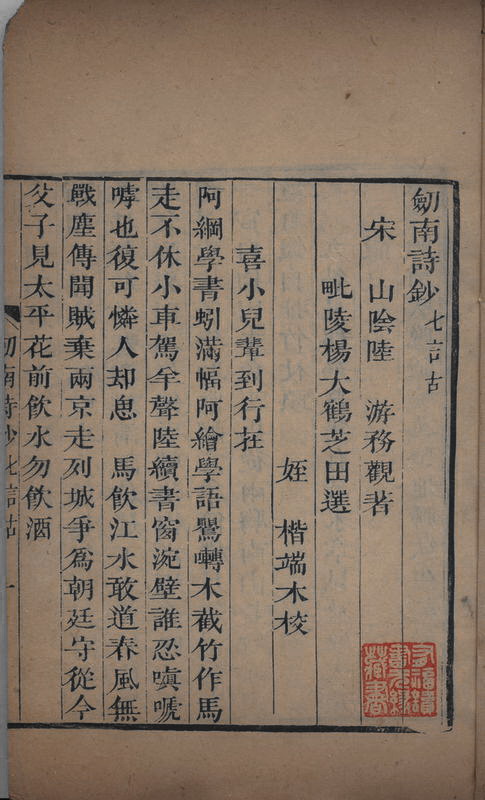 劎南詩鈔 七言古
宋 山陰陸 游務觀著
毗陵楊大鶴芝田選
姪 楷端木校
喜小兒輩到行在
阿綱學書蚓滿幅阿繪學語鶯囀木截竹作馬
走不休小車駕羊聲陸續書窗涴壁誰忍嗔嗁
嘑也復可憐人却思 馬飲江水敢道春風無
戰塵傳聞賊棄兩京走列城爭爲朝廷守從今
父子見太平花前飲水勿飲酒
南詩鈔七言古 一